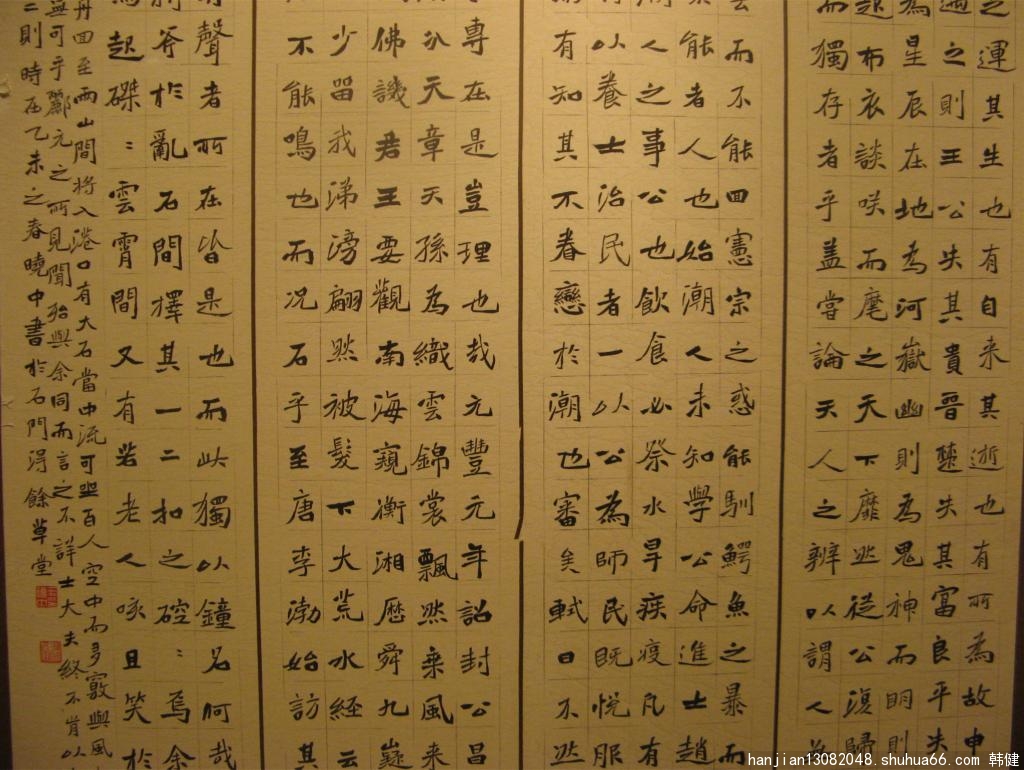 之運其生也有自来其逝也有所為故申
之則王公失其貴晋楚失其富良平失
為星辰在地為河嶽幽則為鬼神而明則
起布衣談咲而麾之天下靡然從公復歸
而獨存者乎盖嘗論天人之辨以謂人
而不能回憲宗之惑能馴鰐魚之暴而
能者人也始潮人未知學公命進士趙
人之事公也飲食必祭水旱疾疫凡有
以養士治民者一以公為師民既悦服
有知其不眷戀於潮也審矣軾曰不然
專在是豈理也哉元豐元年詔封公昌
天章天孫為織雲錦裳飄然乘風来
佛譏君王要觀南海窺衡湘歷舜九嶷
少留我涕滂翩然被髮下大荒水經云
不能鳴也而况石乎至唐李渤始訪其
聲者所在皆是也而此獨以鐘名何哉
斧於亂石間擇其一二扣之硿〻焉余
起磔〻雲霄間又有若老人咳且笑於
舟回至兩山間將入港口有大石當中流可坐百人空中而多竅與風
無可乎酈元之所見聞殆與余同而言之不詳士大夫終不肯以
二則時在乙未之春曉中書於石門淂餘草堂
hanjian13082048.shuhua66.com 韩健